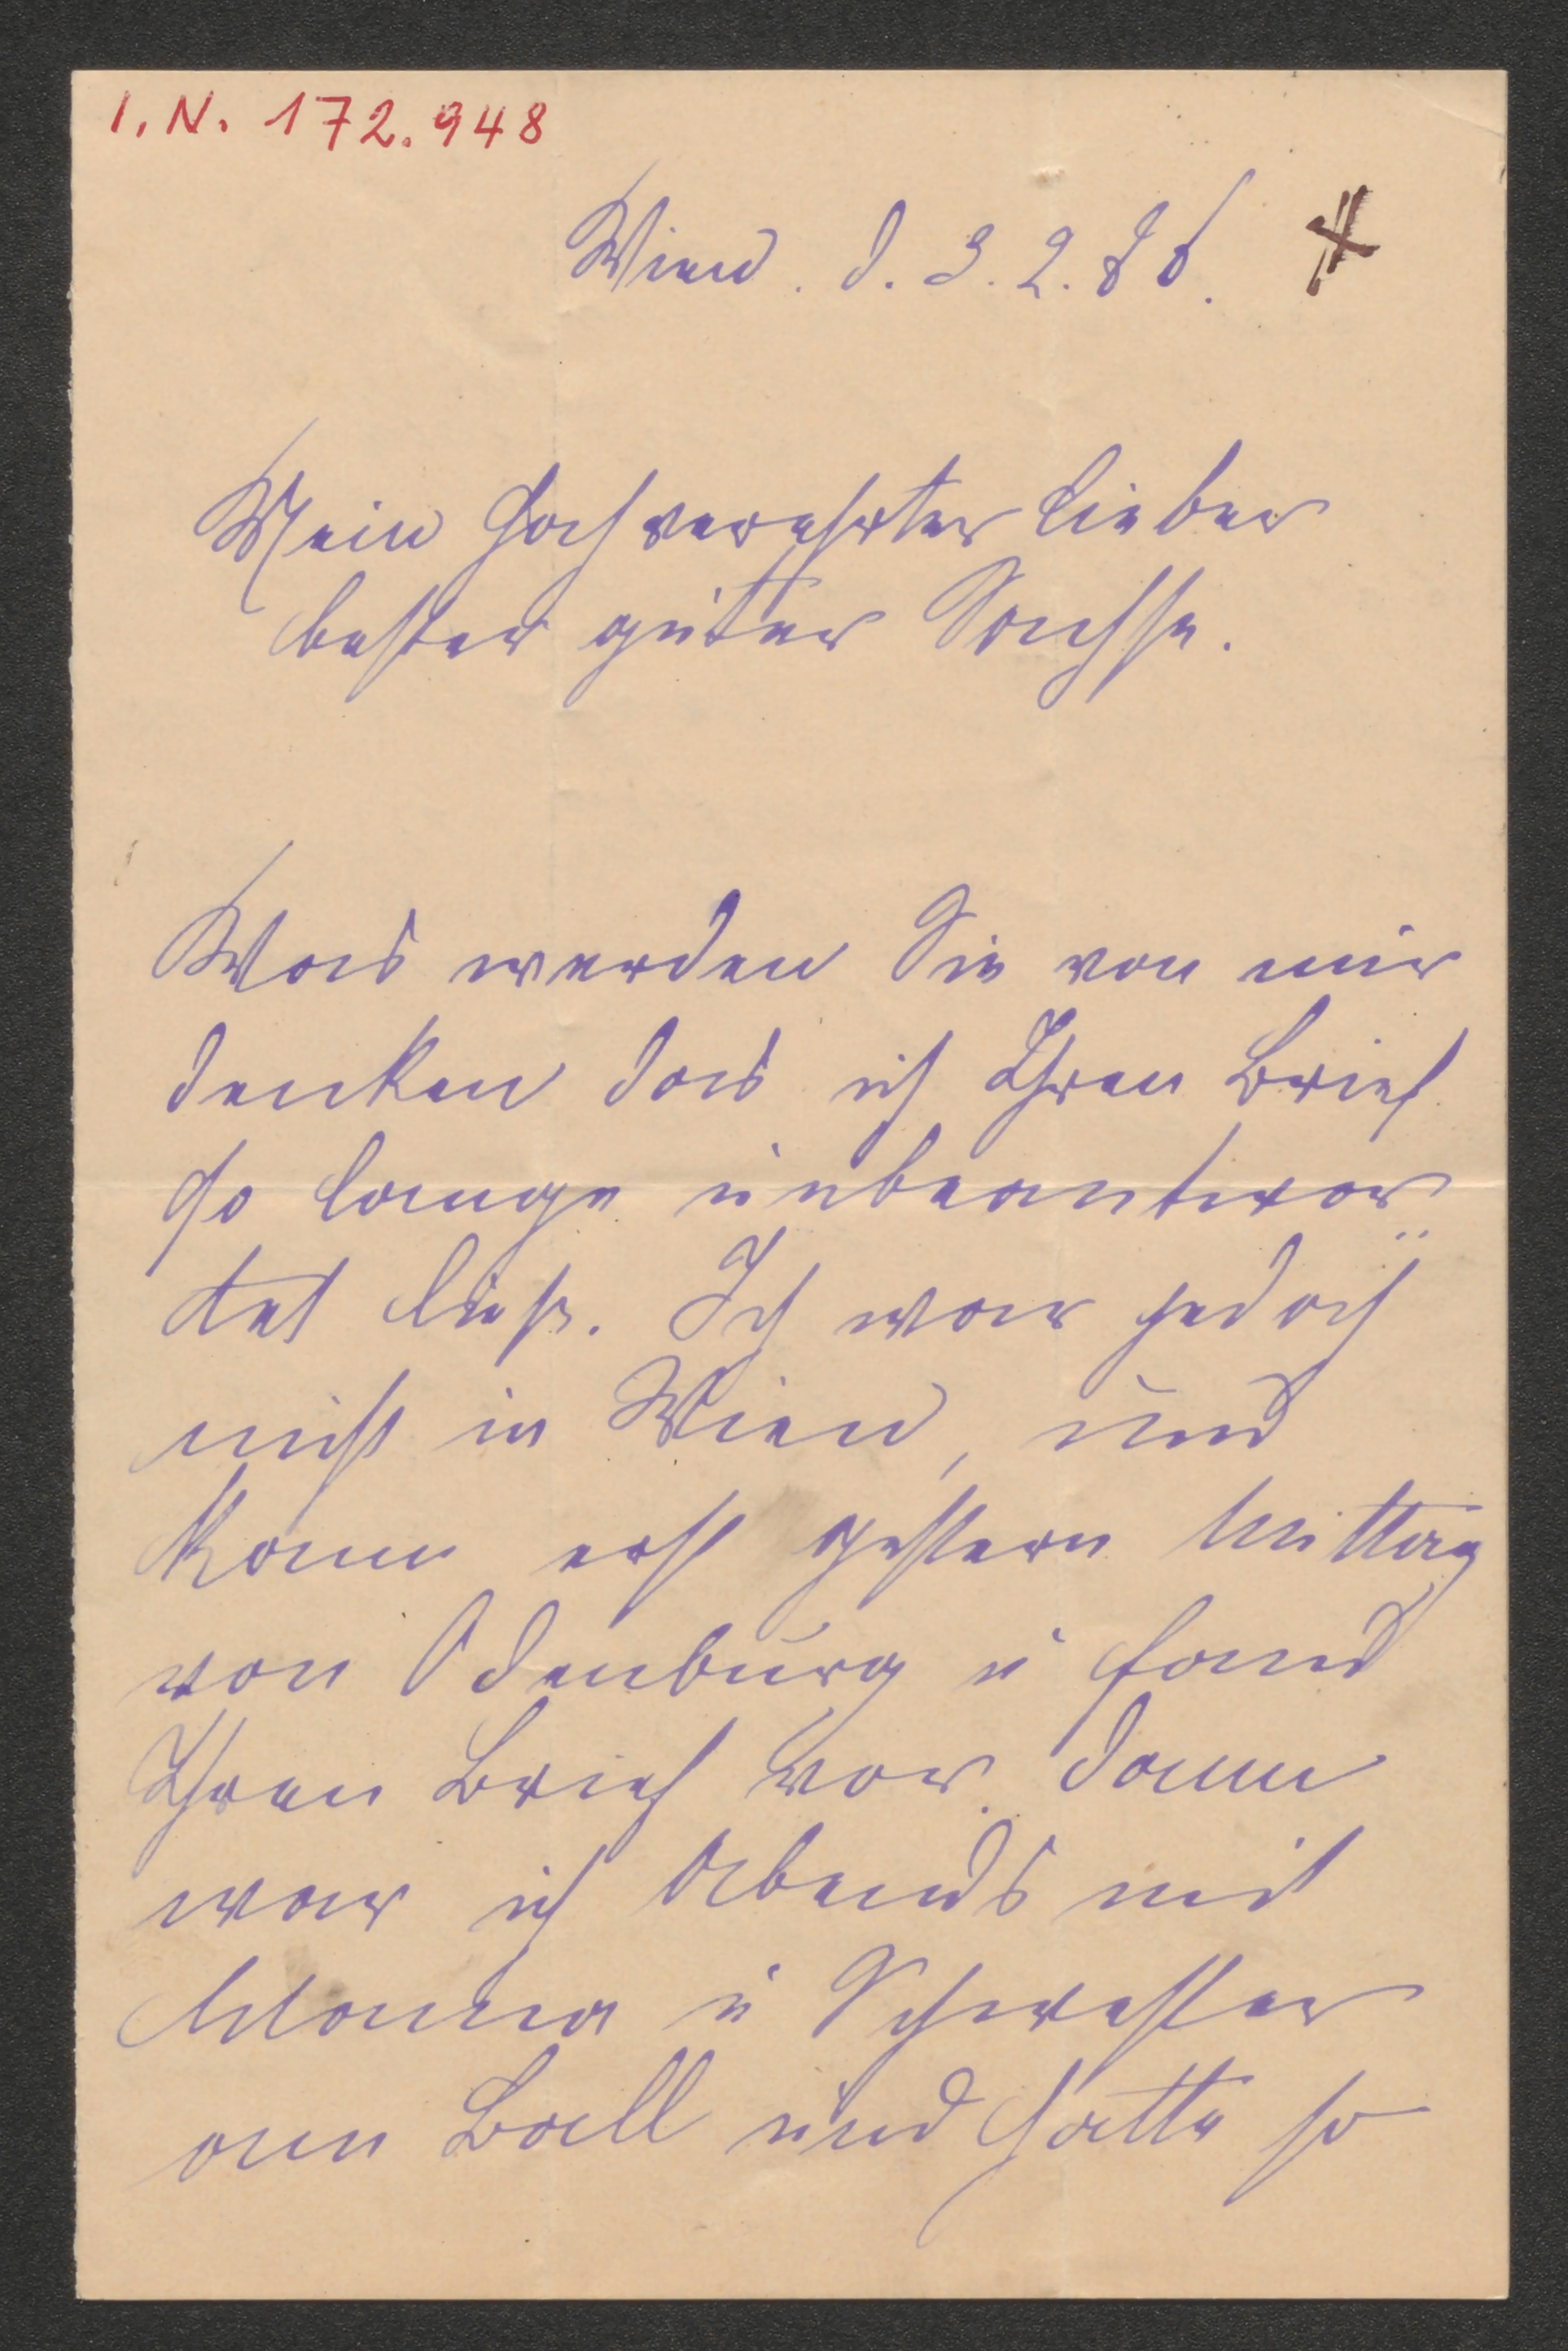 I. N. 172.948
Wien. d. 3. 2. 86.
Mein hochverehrter lieber
bester guter Sachse.
Was werden Sie von mir
denken das ich Ihren Brief
so lange unbeantwor
tet ließ. Ich war jedoch
nicht in Wien, und
kam erst gestern Mittag
von Ödenburg u fand
Ihren Brief vor. dann
war ich Abends mit
Mama u Schwester
am Ball und hatte so